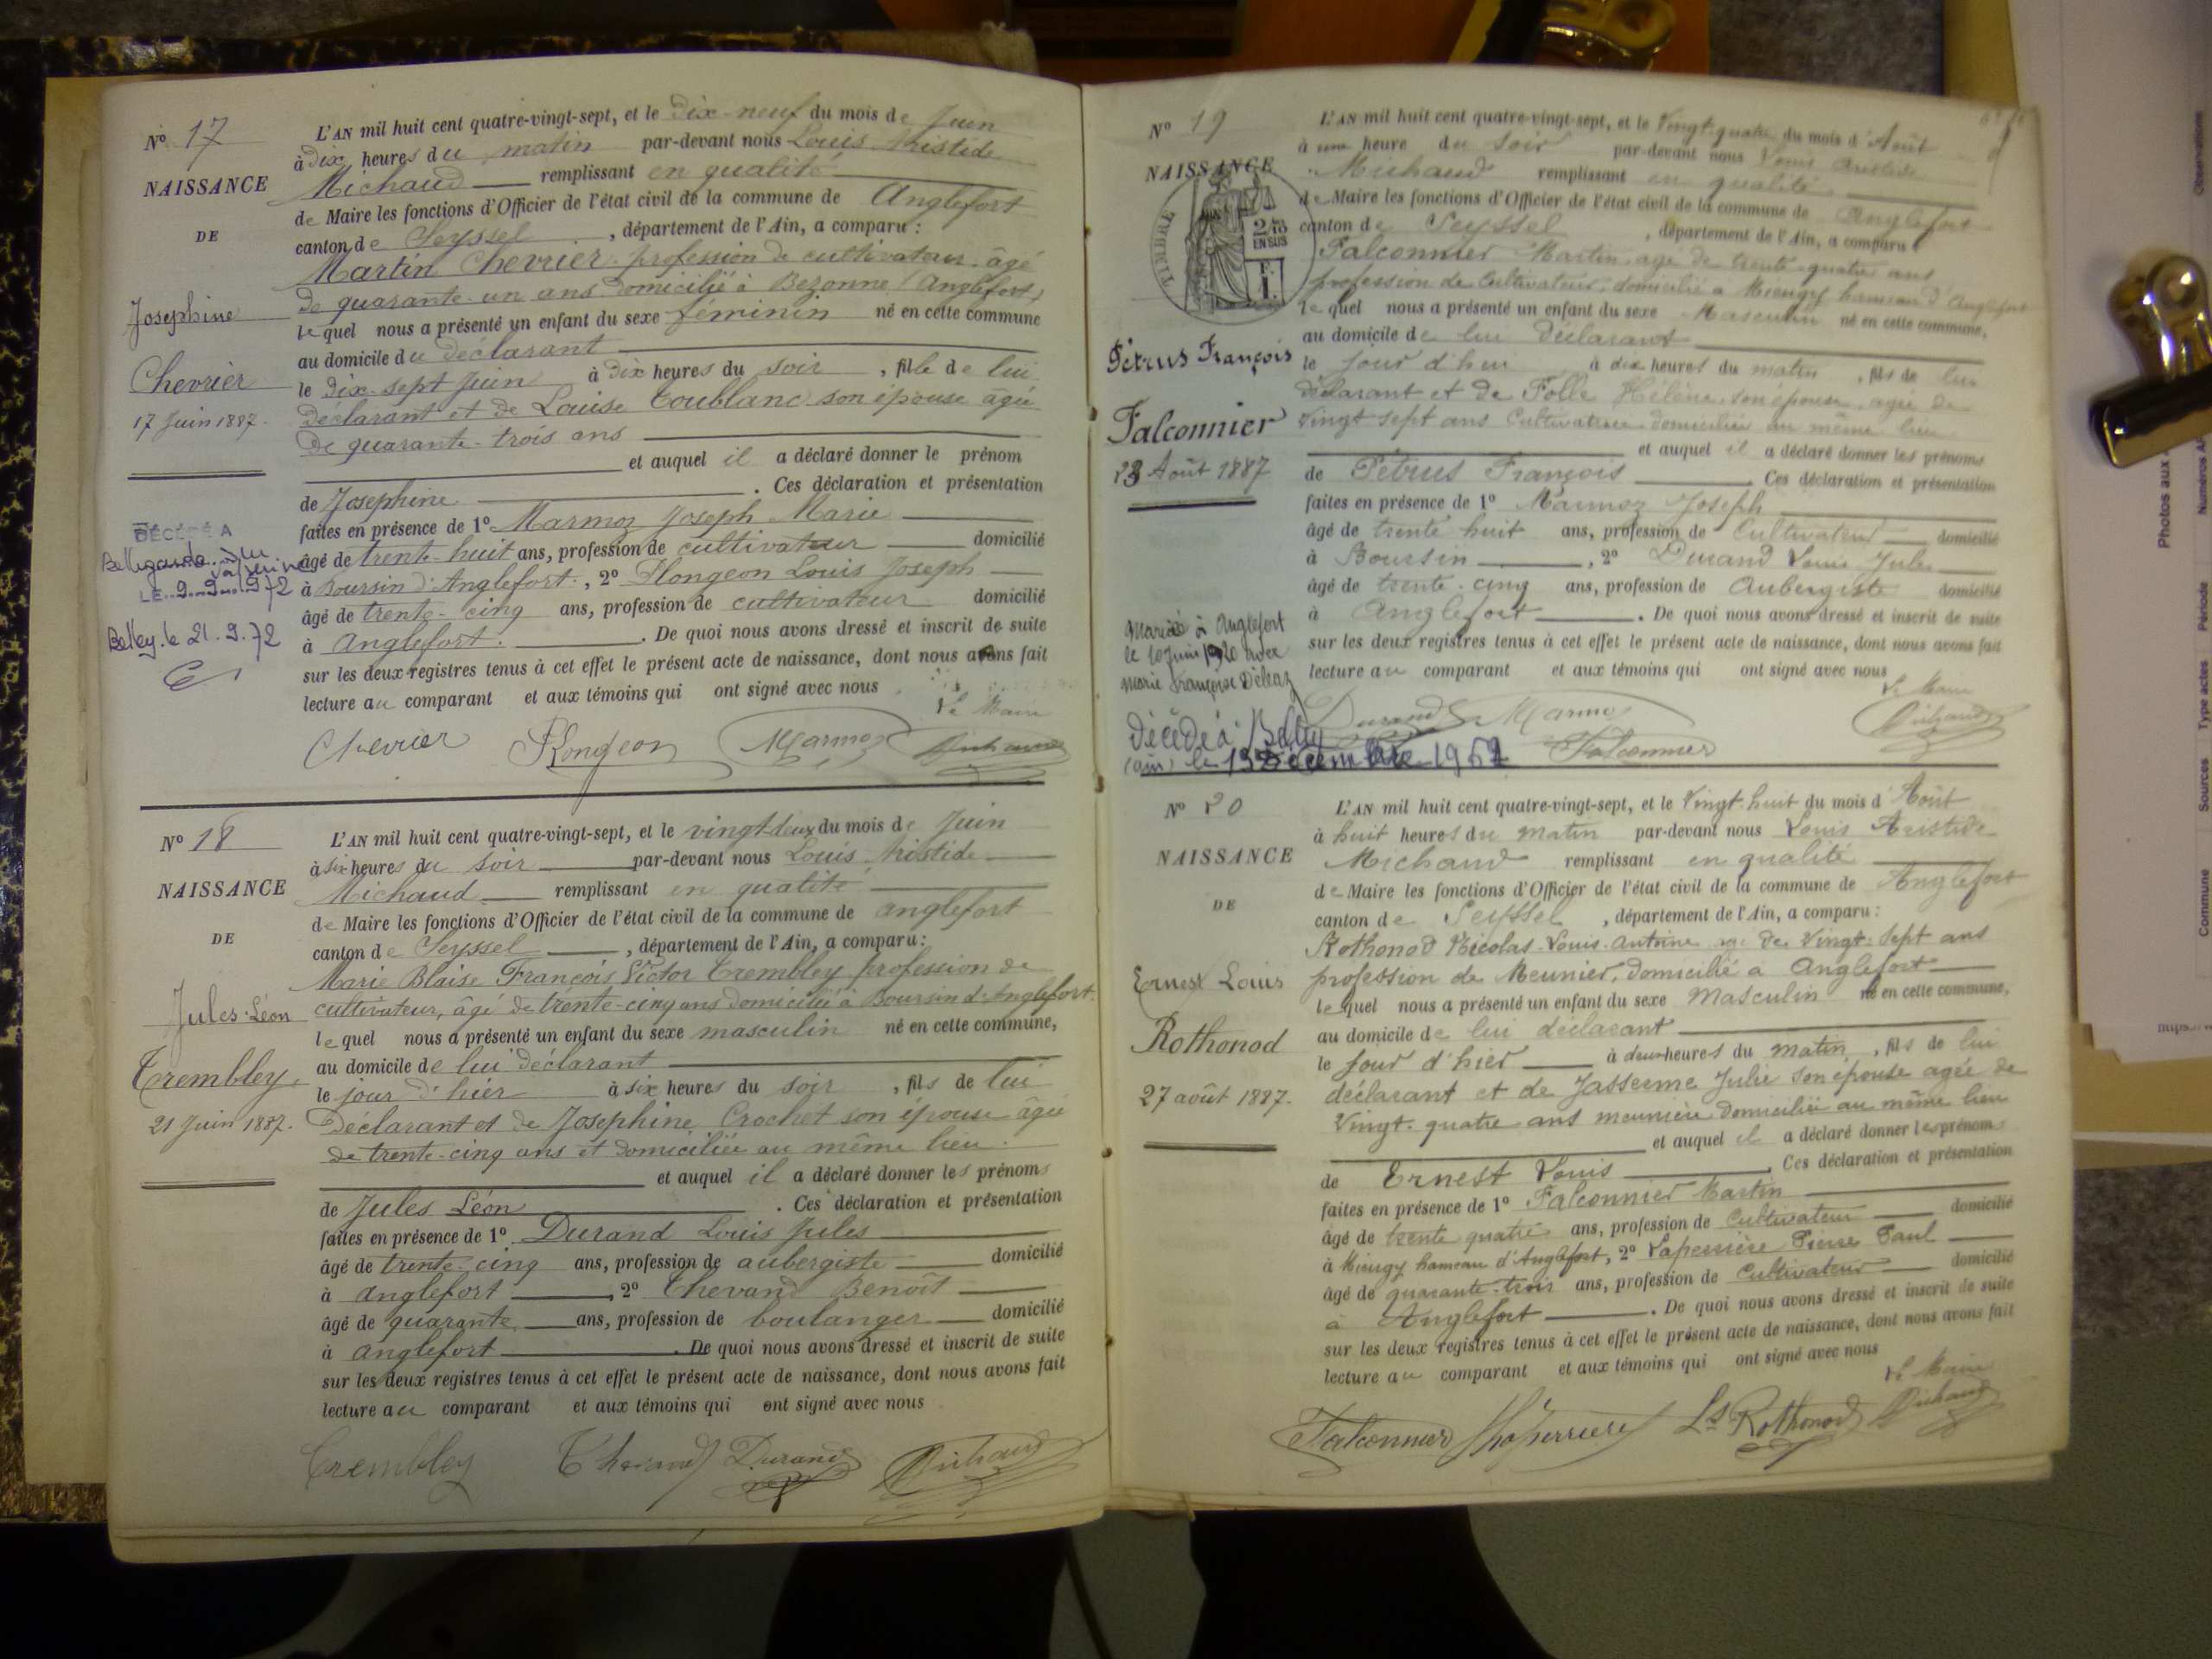 Nº 17
NAISSANCE
DE
Josephine
Chevrier
17 Juin 1887.
DÉCÉDÉ A
Bellegarde
LE 9.9.1972
Belley le 21.9.72
L'AN mil huit cent quatre-vingt-sept, et le dix-neuf du mois de Juin
à dix heures du matin par-devant nous Louis Aristide
Michaud remplissant en qualité
de Maire les fonctions d'Officier de l'état civil de la commune de Anglefort
canton de Seyssel, département de l'Ain, a comparu :
Martin Chevrier profession de cultivateur, âgé
de quarante-un ans domicilié à Bezonne (Anglefort)
lequel nous a présenté un enfant du sexe féminin né en cette commune
au domicile du déclarant
le dix-sept Juin à dix heures du soir, fille de lui
déclarant et de Louise Toublanc son épouse âgée
de quarante-trois ans
et auquel il a déclaré donner le prénom
de Josephine. Ces déclaration et présentation
faites en présence de 1º Marmoz Joseph Marie
âgé de trente-huit ans, profession de cultivateur domicilié
à Boursin d'Anglefort, 2º Plongeon Louis Joseph
âgé de trente-cinq ans, profession de cultivateur domicilié
à Anglefort. De quoi nous avons dressé et inscrit de suite
sur les deux registres tenus à cet effet le présent acte de naissance, dont nous avons fait
lecture au comparant et aux témoins qui ont signé avec nous
Le Maire
Chevrier Plongeon Marmoz Michaud
Nº 18
NAISSANCE
DE
Jules-Léon
Trembley
21 Juin 1887.
L'AN mil huit cent quatre-vingt-sept, et le vingt-deux du mois de Juin
à six heures du soir par-devant nous Louis Aristide
Michaud remplissant en qualité
de Maire les fonctions d'Officier de l'état civil de la commune de anglefort
canton de Seyssel, département de l'Ain, a comparu :
Marie Blaise François Victor Trembley profession de
cultivateur, âgé de trente-cinq ans domicilié à Boursin d'Anglefort.
lequel nous a présenté un enfant du sexe masculin né en cette commune,
au domicile de lui déclarant
le jour d'hier à six heures du soir, fils de lui
Déclarant et de Josephine Crochet son épouse âgée
de trente-cinq ans et domiciliée au même lieu.
et auquel il a déclaré donner les prénoms
de Jules Léon. Ces déclaration et présentation
faites en présence de 1º Durand Louis Jules
âgé de trente-cinq ans, profession de aubergiste domicilié
à anglefort, 2º Thevand Benoît
âgé de quarante ans, profession de boulanger domicilié
à anglefort. De quoi nous avons dressé et inscrit de suite
sur les deux registres tenus à cet effet le présent acte de naissance, dont nous avons fait
lecture au comparant et aux témoins qui ont signé avec nous
Trembley Thevand Durand Michaud
Nº 19
NAISSANCE
TIMBRE
2/10
EN SUS
Pétrus François
Falconnier
23 Août 1887
Marié à Anglefort
le 10 Juin 1920 avec
Marie Françoise Déléaz
Décédé à Belley
(ain) le décembre
L'AN mil huit cent quatre-vingt-sept, et le Vingt-quatre du mois d'Août
à une heure du soir par-devant nous Louis Aristide
Michaud remplissant en qualité
de Maire les fonctions d'Officier de l'état civil de la commune de Anglefort
canton de Seyssel, département de l'Ain, a comparu
Falconnier Martin agé de trente-quatre ans
profession de Cultivateur, domicilié à Mieugy hameau d'Anglefort
lequel nous a présenté un enfant du sexe Masculin né en cette commune,
au domicile de lui Déclarant
le Jour d'hier à dix heures du matin, fils de lui
Déclarant et de Folle Hélène son épouse agée de
Vingt sept ans Cultivatrice domiciliée au même lieu
et auquel il a déclaré donner les prénoms
de Pétrus François. Ces déclaration et présentation
faites en présence de 1º Marmoz Joseph
âgé de trente huit ans, profession de Cultivateur domicilié
à Boursin, 2º Durand Louis Jules
âgé de trente-cinq ans, profession de Aubergiste domicilié
à Anglefort. De quoi nous avons dressé et inscrit de suite
sur les deux registres tenus à cet effet le présent acte de naissance, dont nous avons fait
lecture au comparant et aux témoins qui ont signé avec nous
Le Maire
Durand Marmoz Michaud
Falconnier
Nº 20
NAISSANCE
DE
Ernest Louis
Rothonod
27 août 1887.
L'AN mil huit cent quatre-vingt-sept, et le Vingt-huit du mois d'Août
à huit heures du matin par-devant nous Louis Aristide
Michaud remplissant en qualité
de Maire les fonctions d'Officier de l'état civil de la commune de Anglefort
canton de Seyssel, département de l'Ain, a comparu :
Rothonod Nicolas-Louis-Antoine agé de Vingt-Sept ans
profession de Meunier, domicilié à Anglefort
lequel nous a présenté un enfant du sexe Masculin né en cette commune,
au domicile de lui déclarant
le Jour d'hier à deux heures du matin, fils de lui
déclarant et de Jasserme Julie son épouse agée de
Vingt-quatre ans meunière domiciliée au même lieu
et auquel il a déclaré donner les prénoms
de Ernest Louis. Ces déclaration et présentation
faites en présence de 1º Falconnier Martin
âgé de trente quatre ans, profession de Cultivateur domicilié
à Mieugy hameau d'Anglefort, 2º Laperrière Pierre Paul
âgé de quarante-trois ans, profession de Cultivateur domicilié
à Anglefort. De quoi nous avons dressé et inscrit de suite
sur les deux registres tenus à cet effet le présent acte de naissance, dont nous avons fait
lecture au comparant et aux témoins qui ont signé avec nous
Le Maire
Falconnier Laperriere Ls Rothonod Michaud
Commune Sources Type actes Période Numéros
Photos aux
Observations